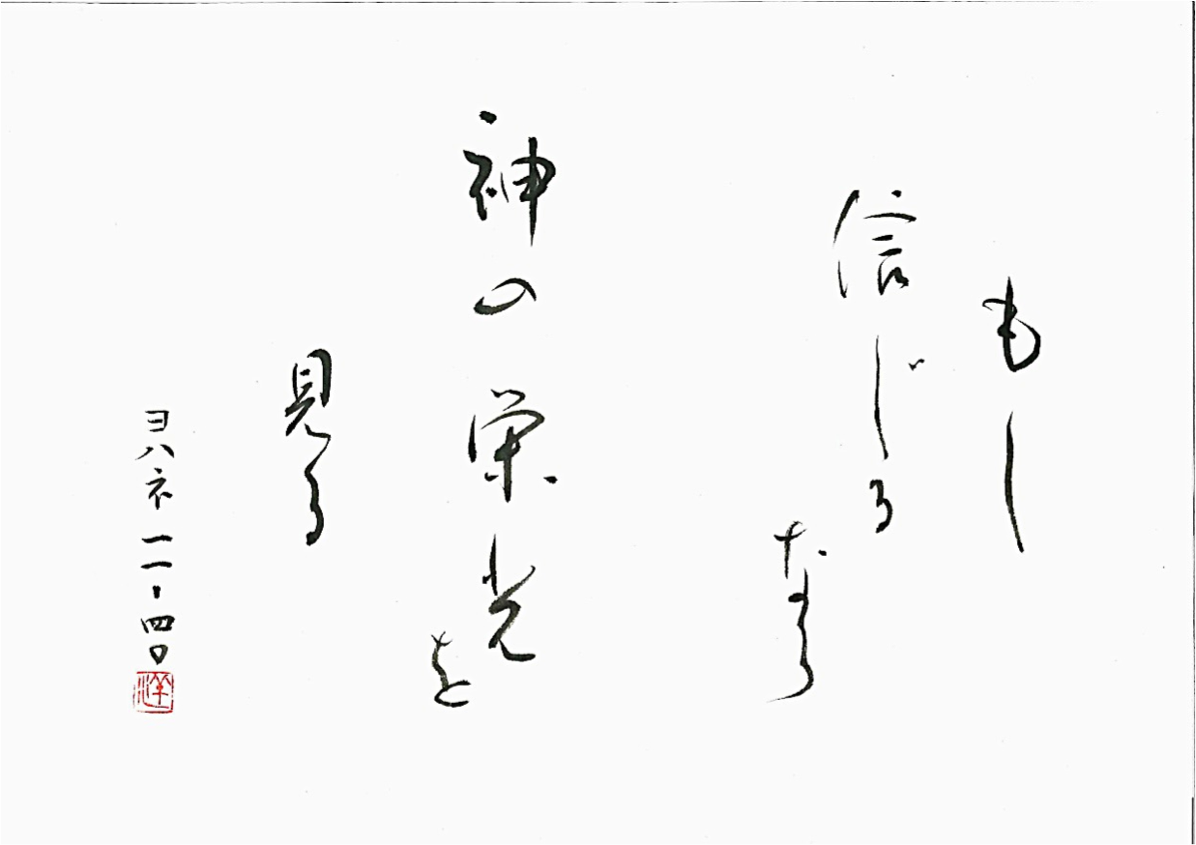 もし
信じる
なら
神の栄光
を
見る
ヨハネ一一・四〇
洋